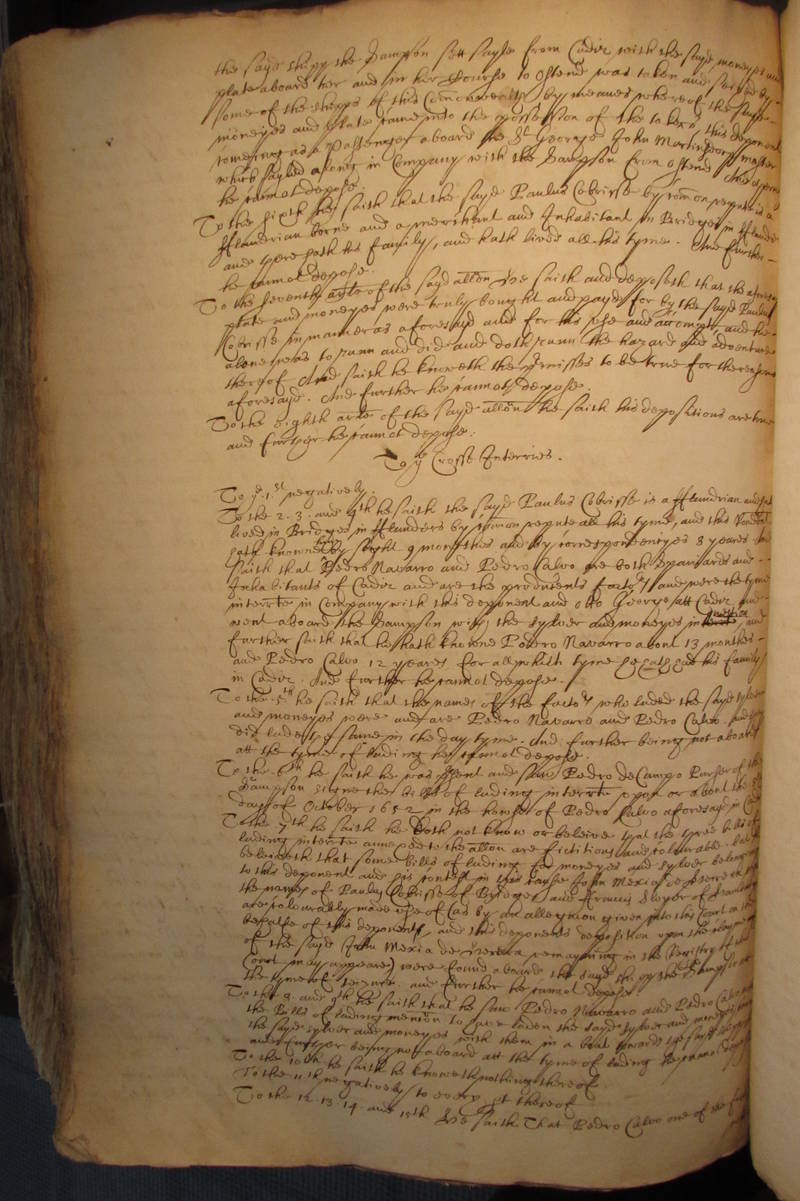 the sayd shipp the Sampson sett sayle from Cadiz with the sayd moneyes and
plate aboard her and in her Course to Ostend was taken and
some of the shipps of this Comonwealth, by meanes whereof the sayd
moneyes and plate came into the possession of the takers, this deponent
comeing as a passenger aboard the St George John Martinson master
which sayled along in Company with the Sampson from
he cannot depose.
To the sixth hee saith that the sayd Paulus Cobrisse by comon repute is a
Flandrian borne and a merchant and Inhabitant in Bridges in Flanders
and there hath his family, and hath lived all his tyme. And further
he cannot depose.
To the seventh arte of the sayd allon hee saith and deposeth that the
plate and moneyes were truly bought and payd for by the sayd Paulus
Cobrisse in manner as aforesayd and for his use and accompt, and hee
alone was to runn and did and doth runn the hazard and adventure
thereof And saith he knoweth the premisses to be true for the reasons
aforesayd. And further he cannot depose.
To the eighth arte of the sayd allon he saith his depositions are true
and further he cannot depose.
To ye Crosse Interries.
To ye 1st negatively.
To the 2. 3. and 4th he saith the sayd Paulus Cobrisse is a Flandrian and hath
lived in Bridges in Flanders by comon repute all his tyme, and this
hath knowne him by sight 9 monthes and by correspondencye 8 yeares And
saith that Pedro Navarro and Pedro Calvo are both Spaniards and
Inhabitants of Cadiz and are the producents factors and were the tyme
interrte in Company with this deponent and att Cadiz and
went aboard the Sampson with the sylver and moneyes in question and
further saith that he hath knowne Pedro Navarro about 13 monthes
and Pedro Calvo 12 yeares for all which tyme he hath had his family
in Cadiz. And further he cannot depose.
To the 5th he saith that the names of the factors who laded the sayd sylver
and moneyes were and are Pedro Navarro and Pedro Calvo and they
did lade the same in the day tyme. And further being not aboard
att the tyme of lading he cannot depose.
To the 6th he saith he was present and saw Pedro de Campo Purser of the
Sampson signe the bills of lading interrte upon or about the
day of October 1652 in the house of Pedro Calvo aforesayd in
To the 7th he saith he doth not know or beleive that the three bills of
lading interrte annexed to the allon are fictitious and colourable. but
beleiveth that some bills of lading for moneyes and sylver belonging
to this deponent and his consort in this cause John Mexia de
the names of Paulus Cobrisse of Bridges and
are colourably made use of (as by an allegation given into this Court on the
behalfe of this deponent, and this deponents deposition upon the
of the sayd John Mexia de remayning in the Registry of this
Court may appeare) were found aboard the sayd shipp the Sampson at
the tyme of seizure. and further he cannot depose.
To the 8. and 9th he saith that he saw Pedro Navarro and Pedro Calvo
the Bills of lading mencon to have laden the sayd sylver and moneyes
the sayd sylver and moneyes with them in a boat towards the sayd shipp
and further being not aboard att the tyme of lading he cannot depose
To the 10th he saith he knoweth nothing thereof
To the 11th negatively to every pt thereof
To the 12 13 14 and 15th hee saith That Pedro Calvo one of the